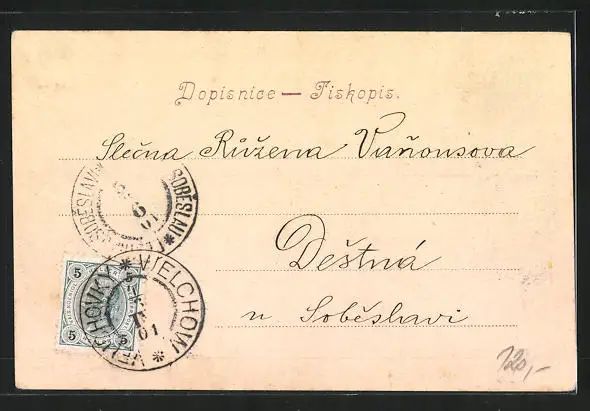 Dopisnice — Tiskopis.
Slečna Růžena Vaňousova
SOBĚSLAV SOBĚSLAU
6
01
Deštná
u Soběslavi
5
5 5
VELICHOVKY * WELCHOW *
01
120,-